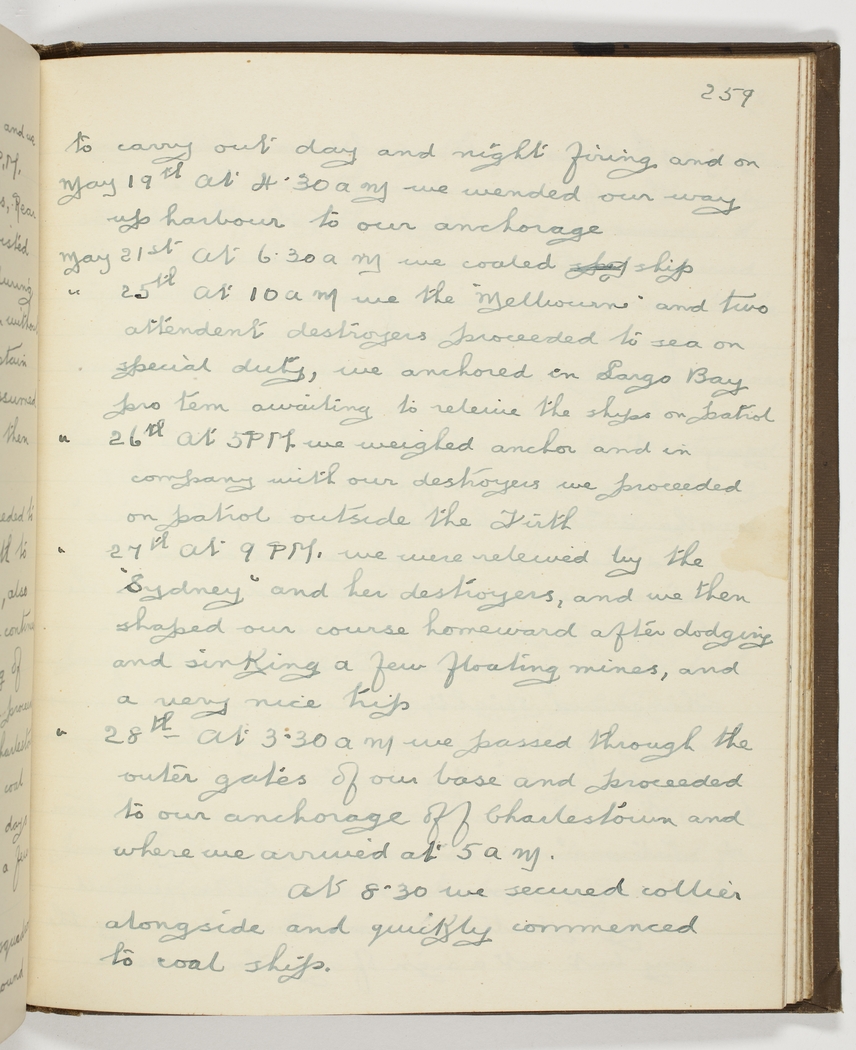 259
to carry out day and night firing and on
May 19th At 4.30 a m we wended our way
up harbour to our anchorage
May 21st At 6.30 a m we coaled ship
" 25th At 10 a m we the "Melbourne" and two
attendent destroyers proceeded to sea on
special duty, we anchored in Largo Bay
pro tem awaiting to releive the ships on patrol
" 26th At 5 PM. we weighed anchor and in
company with our destroyers we proceeded
on patrol outside the Firth
" 27th At 9 PM. we were releived by the
"Sydney" and her destroyers, and we then
shaped our course homeward after dodging
and sinking a few floating mines, and
a very nice trip
" 28th At 3.30 a m we passed through the
outer gates of our base and proceeded
to our anchorage off Charlestown and
where we arrived at 5 a m.
At 8.30 we secured collier
alongside and quickly commenced
to coal ship.